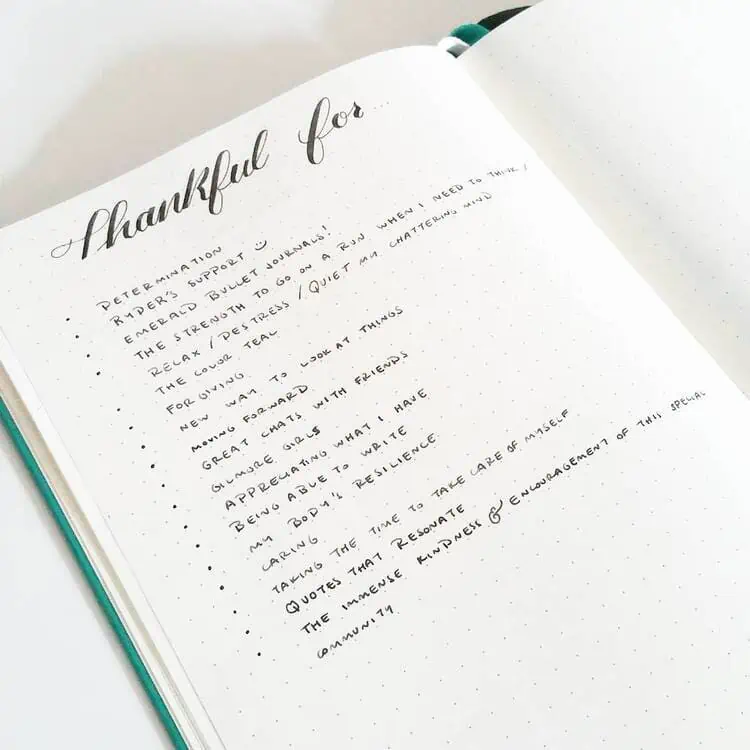 thankful for...
• DETERMINATION
• RYDER'S SUPPORT ☺
• EMERALD BULLET JOURNALS!
• THE STRENGTH TO GO ON A RUN WHEN I NEED TO THINK /
RELAX / DESTRESS / QUIET MY CHATTERING MIND
• THE COLOR TEAL
• FORGIVING
• NEW WAY TO LOOK AT THINGS
• MOVING FORWARD
• GREAT CHATS WITH FRIENDS
• GILMORE GIRLS
• APPRECIATING WHAT I HAVE
• BEING ABLE TO WRITE
• MY BODY'S RESILIENCE
• CARING
• TAKING THE TIME TO TAKE CARE OF MYSELF
• QUOTES THAT RESONATE
• THE IMMENSE KINDNESS & ENCOURAGEMENT OF THIS SPECIAL
COMMUNITY